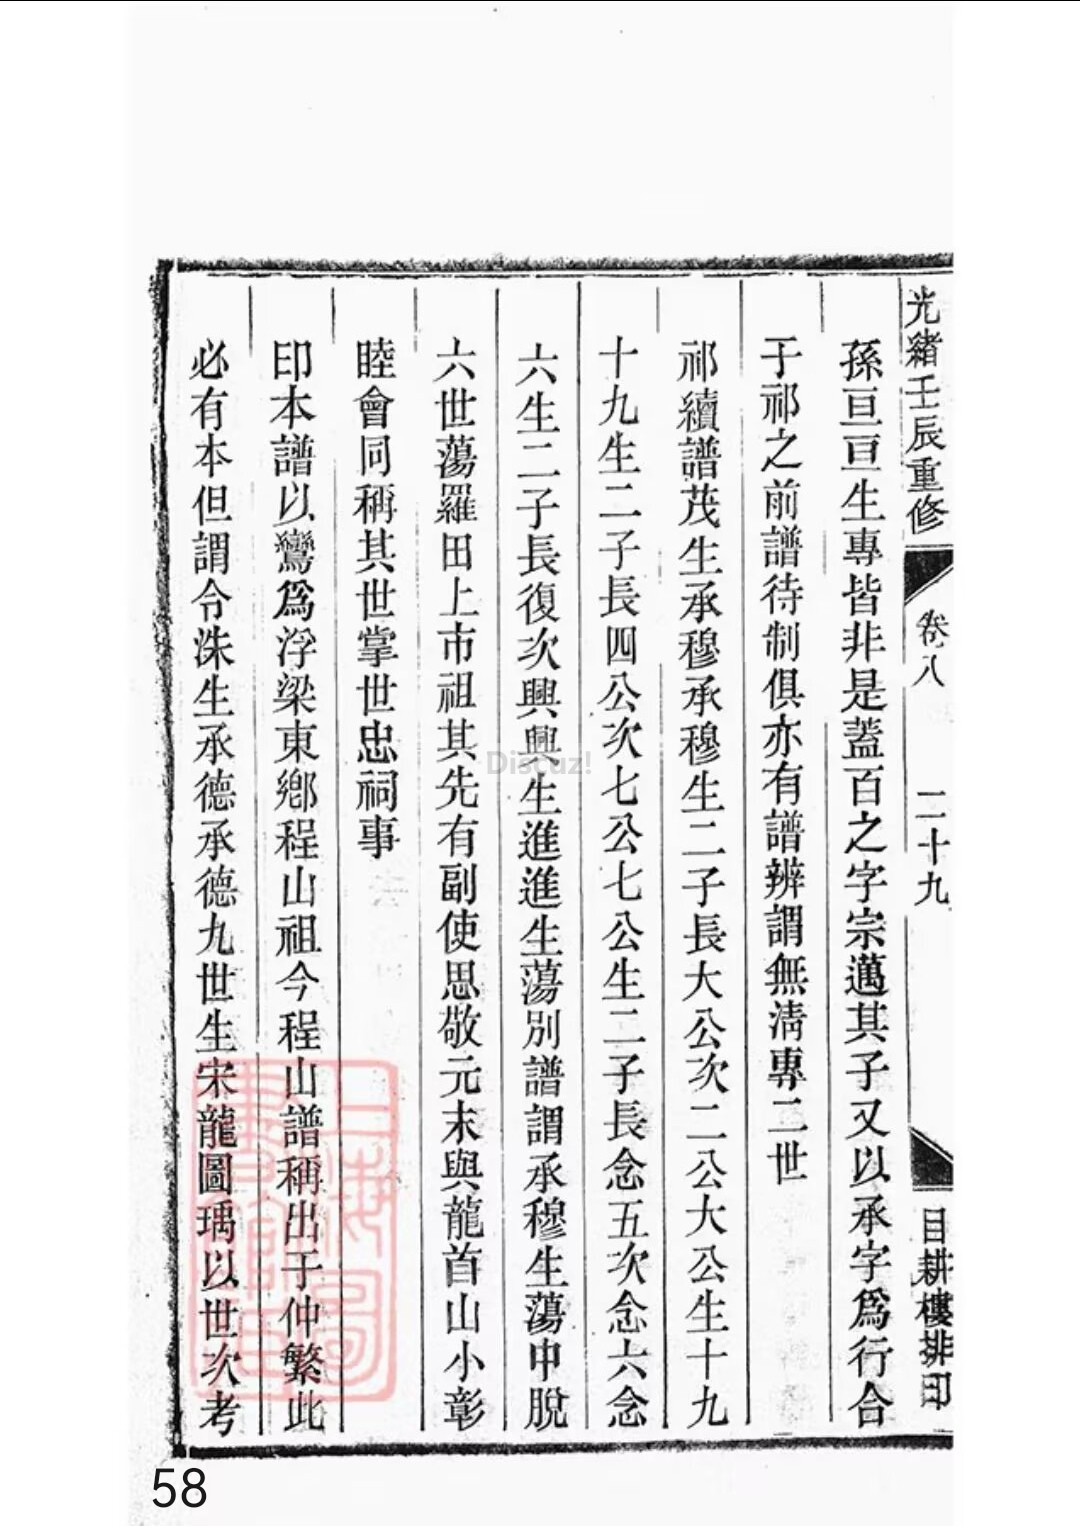 光緒壬辰重修
卷八
二十九
目耕樓排印
孫亘亘生專皆非是蓋百之字宗邁其子又以承字爲行合
于祁之前譜待制俱亦有譜辨謂無淸專二世
祁續譜茂生承穆承穆生二子長大公次二公大公生十九
十九生二子長四公次七公七公生二子長念五次念六念
六生二子長復次興興生進進生蕩別譜謂承穆生蕩中脫
六世蕩羅田上市祖其先有副使思敬元末與龍首山小彰
睦會同稱其世掌世忠祠事
印本譜以鸞爲浮梁東鄉程山祖今程山譜稱出于仲繁此
必有本但謂令洙生承德承德九世生宋龍圖瑀以世次考
Discuz!
上海圖書館藏
58